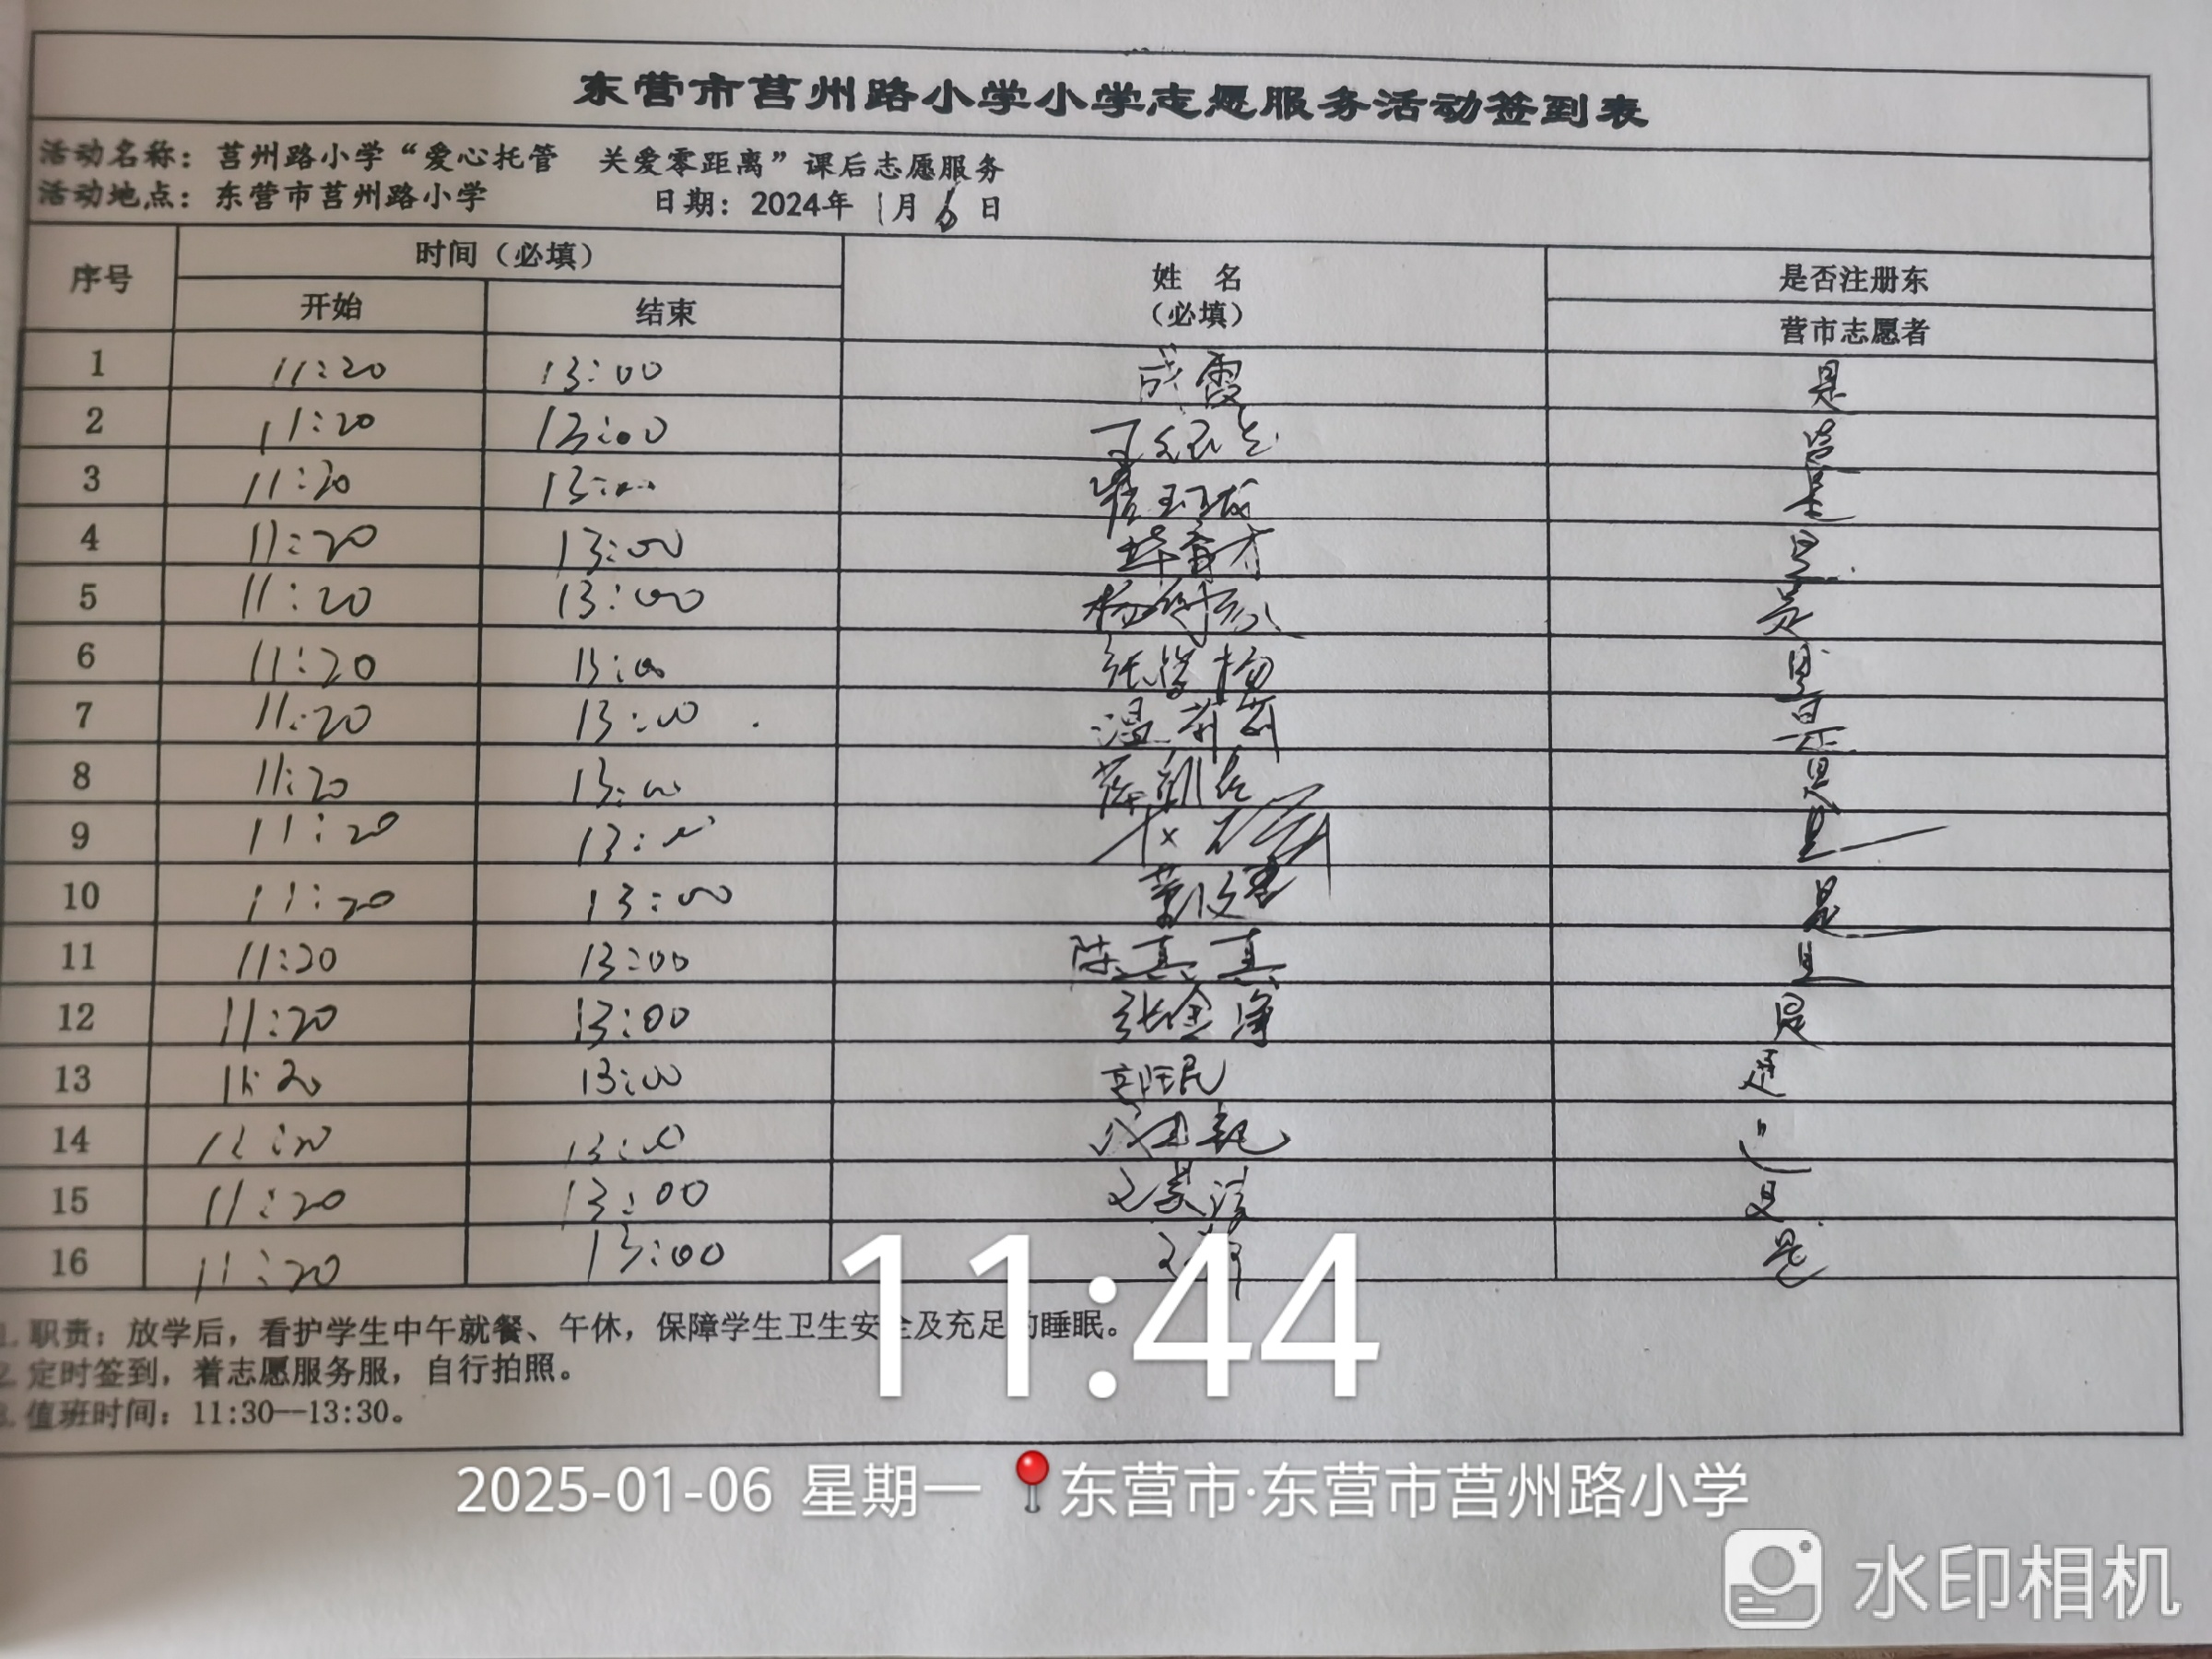 东营市莒州路小学小学志愿服务活动签到表
活动名称：莒州路小学“爱心托管 关爱零距离”课后志愿服务
活动地点：东营市莒州路小学 日期：2024年1月6日
序号 时间（必填） 姓 名（必填） 是否注册东营市志愿者
开始 结束
1 11:20 13:00 成霞 是
2 11:20 13:00
3 11:20 13:00 是
4 11:20 13:00 毕育才 是
5 11:20 13:00 是
6 11:20 13:00 是
7 11:20 13:00 温莉莉 是
8 11:20 13:00 是
9 11:20 13:00 是
10 11:20 13:00 是
11 11:20 13:00 陈真真 是
12 11:20 13:00 张金净 是
13 11:20 13:00 是
14 11:20 13:00
15 11:20 13:00 是
16 11:20 13:00 是
1.职责：放学后，看护学生中午就餐、午休，保障学生卫生安全及充足的睡眠。
2.定时签到，着志愿服务服，自行拍照。
3.值班时间：11:30—13:30。
11:44
2025-01-06 星期一 东营市·东营市莒州路小学
水印相机